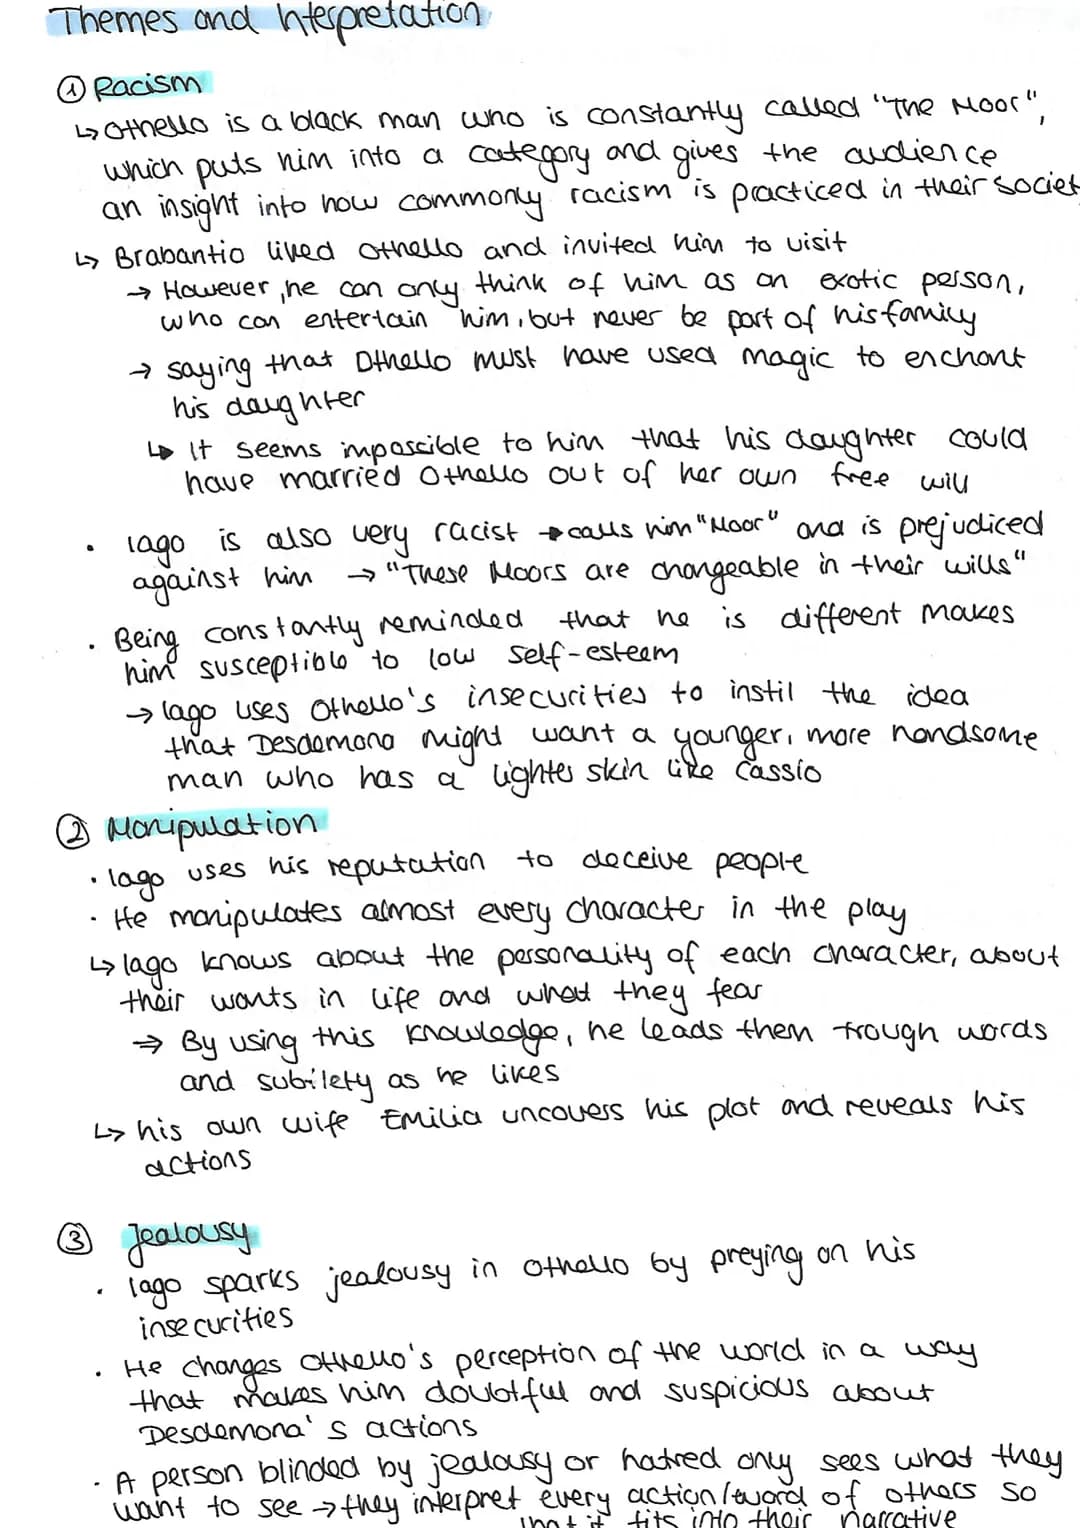 Themes and Interpretation
① Racism
↳ Othello is a black man who is constantly called "The Moor",
which puts him into a category and gives the audience
an insight into how commonly racism is practiced in their societ
↳ Brabantio liked Othello and invited him to visit
→ However, he can only think of him as an exotic person,
who can entertain him, but never be part of his family
→ saying that Othello must have used magic to enchant
his daughter
↳ It seems impossible to him that his daughter could
have married Othello out of her own free will
• Iago is also very racist → calls him "Moor" and is prejudiced
against him → "These Moors are changeable in their wills"
• Being constantly reminded that he is different makes
him susceptible to low self-esteem
→ Iago uses Othello's insecurities to instil the idea
that Desdemona might want a younger, more handsome
man who has a lighter skin like Cassio
② Manipulation
• Iago uses his reputation to deceive people
• He manipulates almost every character in the play
↳ Iago knows about the personality of each character, about
their wants in life and what they fear
⇒ By using this knowledge, he leads them trough words
and subtilety as he likes
↳ his own wife Emilia uncovers his plot and reveals his
actions
③ Jealousy
• Iago sparks jealousy in Othello by preying on his
insecurities
• He changes Othello's perception of the world in a way
that makes him doubtful and suspicious about
Desdemona's actions
• A person blinded by jealousy or hatred only sees what they
want to see → they interpret every action/word of others so
that it fits into their narrative